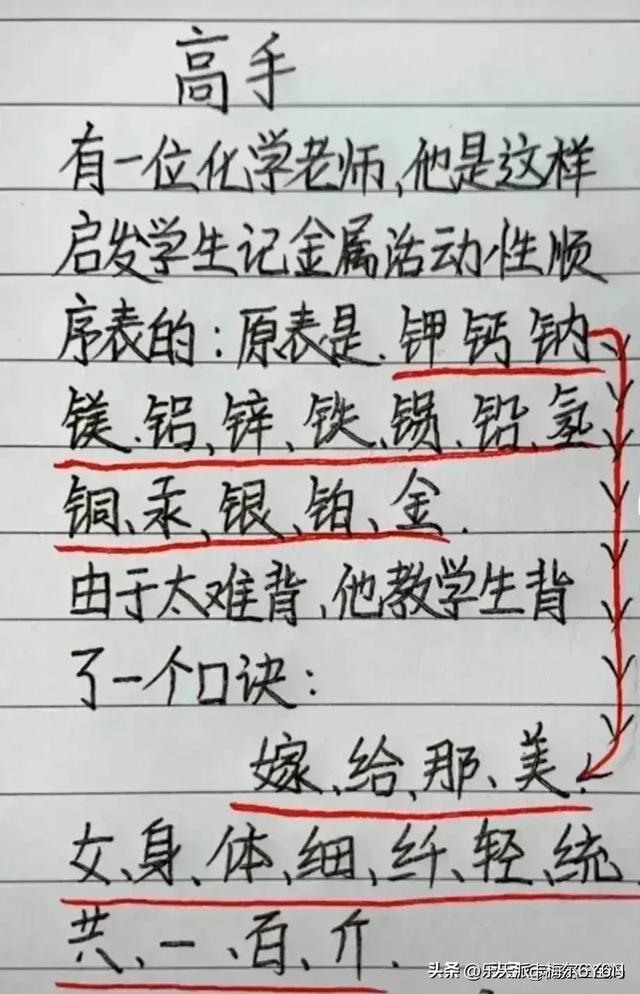 高手
有一位化学老师,他是这样
启发学生记金属活动性顺
序表的:原表是.钾钙钠、
镁.铝、锌、铁、锡.铅、氢
铜、汞、银、铂、金.
由于太难背,他教学生背
了一个口诀:
嫁、给、那、美.
女、身、体、细、纤、轻、统
共、一、百、斤.
头条